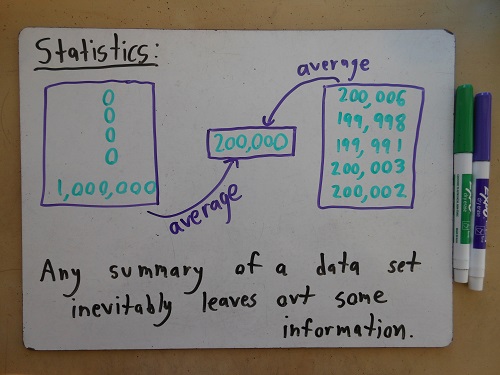 Statistics:
average
0
0
0
0
1,000,000
200,000
200,006
199,998
199,991
200,003
200,002
average
Any summary of a data set
inevitably leaves out some
information.
EXPO
EXPO